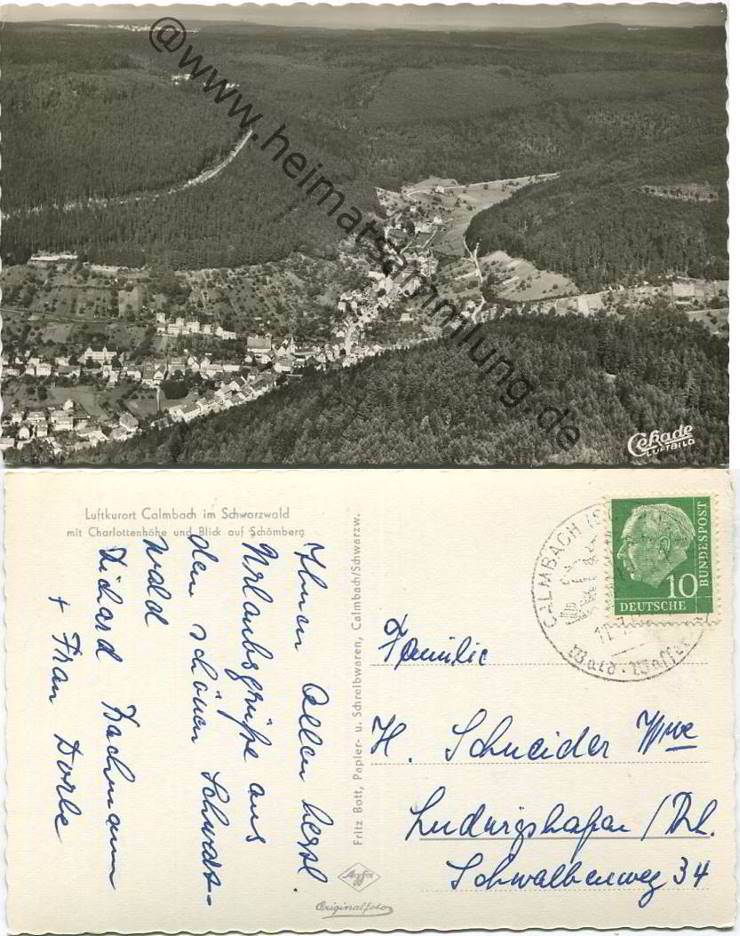 @www.heimatsammlung.de
Cekade
LUFTBILD
Luftkurort Calmbach im Schwarzwald
mit Charlottenhöhe und Blick auf Schömberg
Ihnen Allen herzl.
Urlaubsgrüße aus
dem schönen Schwarz-
wald
Richard
+ Frau Dorle
Fritz Bott, Papier- u. Schreibwaren, Calmbach/Schwarzw.
Agfa
Originalfoto
CALMBACH (S
Wald · Wasser
10
DEUTSCHE
BUNDESPOST
Familie
H. Schneider Wwe
Ludwigshafen / Rh.
Schwalbenweg 34